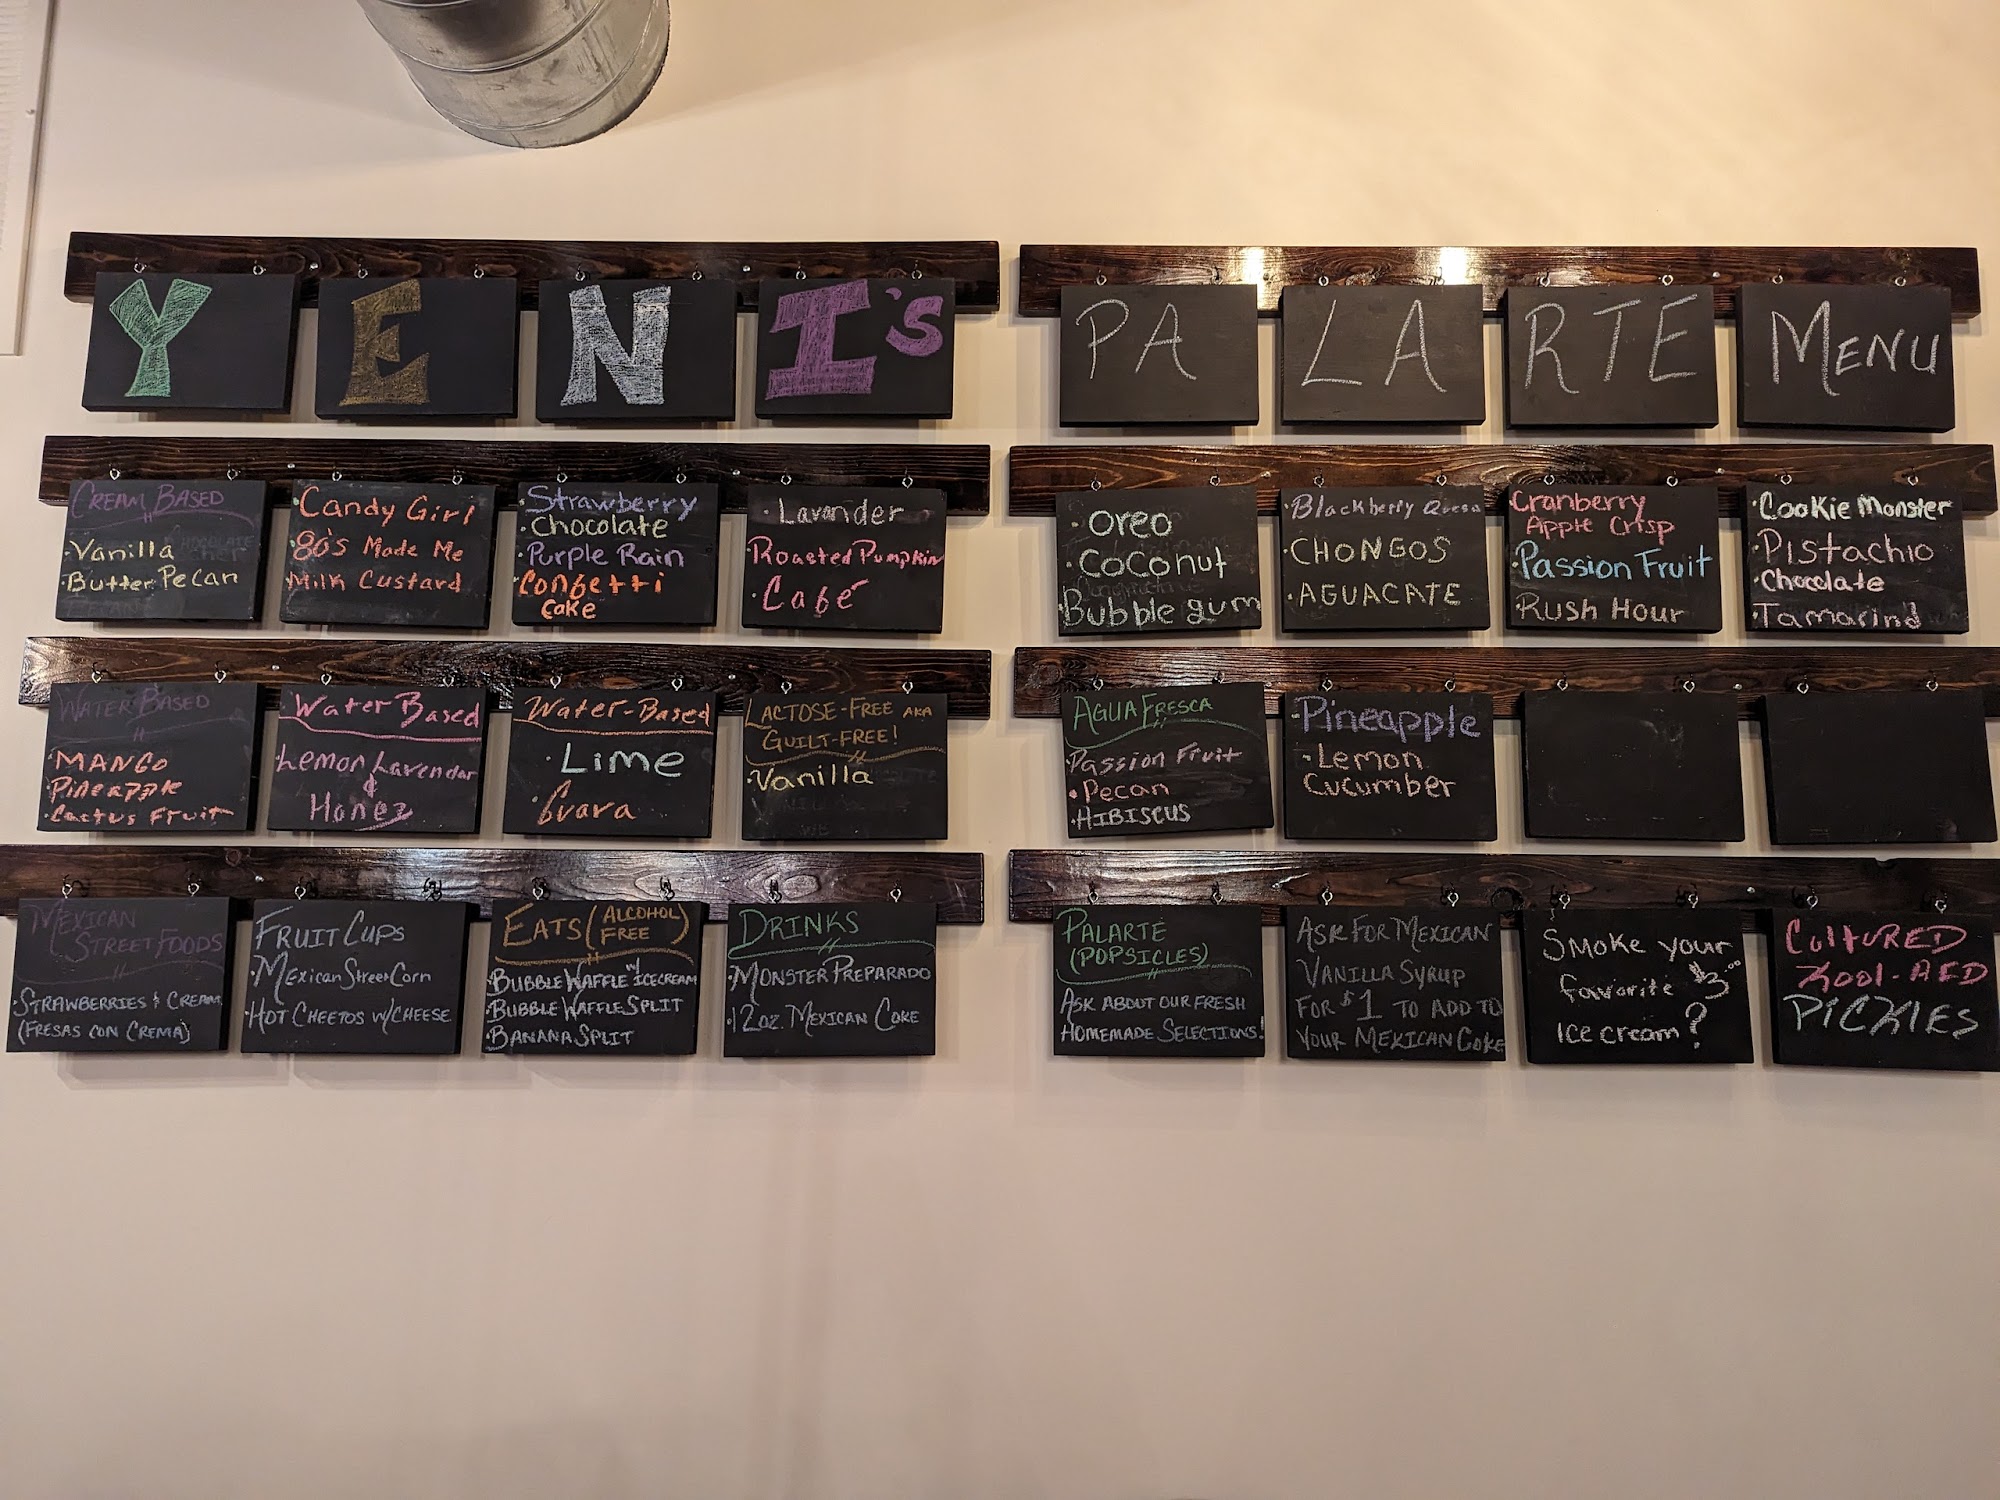 YENI'S
PA LA RTE MENU
CREAM BASED
·Vanilla
·Butter Pecan
·Candy Girl
·80's Made Me
Milk Custard
·Strawberry
·Chocolate
·Purple Rain
·Confetti
Cake
·Lavander
·Roasted Pumpkin
·Café
·Oreo
·Coconut
·Bubble gum
·Blackberry Quesa
·CHONGOS
·AGUACATE
Cranberry
Apple Crisp
·Passion Fruit
·Rush Hour
·Cookie Monster
·Pistachio
·Chocolate
·Tamarind
WATER BASED
·MANGO
Pineapple
·Cactus Fruit
·Water Based
·Lemon Lavendar
&
Honey
Water-Based
·Lime
·Guava
LACTOSE-FREE AKA
GUILT-FREE!
·Vanilla
AGUA FRESCA
·Passion Fruit
·Pecan
·HIBISCUS
·Pineapple
·Lemon
Cucumber
MEXICAN
STREET FOODS
·STRAWBERRIES & CREAM
(FRESAS CON CREMA)
FRUIT CUPS
·MEXICAN STREET CORN
·HOT CHEETOS W/CHEESE
EATS (ALCOHOL
FREE)
·BUBBLE WAFFLE W/ ICECREAM
·BUBBLE WAFFLE SPLIT
·BANANA SPLIT
DRINKS
·MONSTER PREPARADO
·12OZ. MEXICAN COKE
PALARTE
(POPSICLES)
ASK ABOUT OUR FRESH
HOMEMADE SELECTIONS!
ASK FOR MEXICAN
VANILLA SYRUP
FOR $1 TO ADD TO
YOUR MEXICAN COKE
Smoke your
favorite $3.00
Ice cream?
CULTURED
KOOL-AED
PICKLES